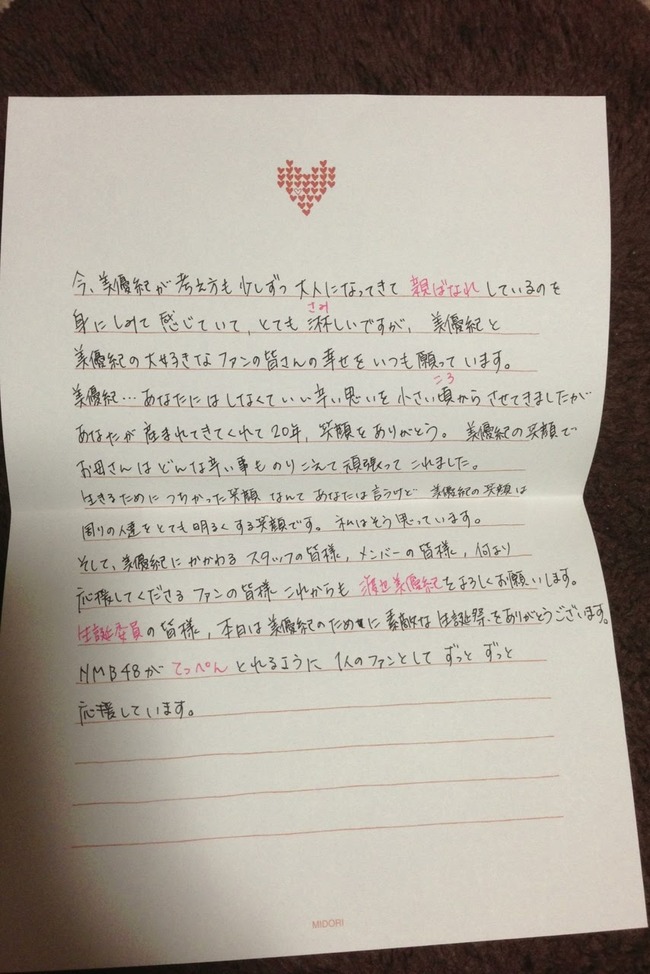 今、美優紀が考え方も少しずつ大人になってきて親ばなれしているのを
身にしみて感じていて、とても淋しいですが、美優紀と
さみ
美優紀の大好きなファンの皆さんの幸せをいつも願っています。
美優紀…あなたにはしなくていい辛い思いを小さい頃からさせてきましたが
ころ
あなたが産まれてきてくれて20年、笑顔をありがとう。美優紀の笑顔で
お母さんはどんな辛い事ものりこえて頑張ってこれました。
生きるためにつちかった笑顔なんてあなたは言うけど美優紀の笑顔は
周りの人達をとても明るくする笑顔です。私はそう思っています。
そして、美優紀にかかわるスタッフの皆様、メンバーの皆様、何より
応援してくださるファンの皆様これからも渡辺美優紀をよろしくお願いします。
生誕委員の皆様、本日は美優紀のために素敵な生誕祭をありがとうございます。
NMB48がてっぺんとれるように1人のファンとしてずっとずっと
応援しています。
MIDORI